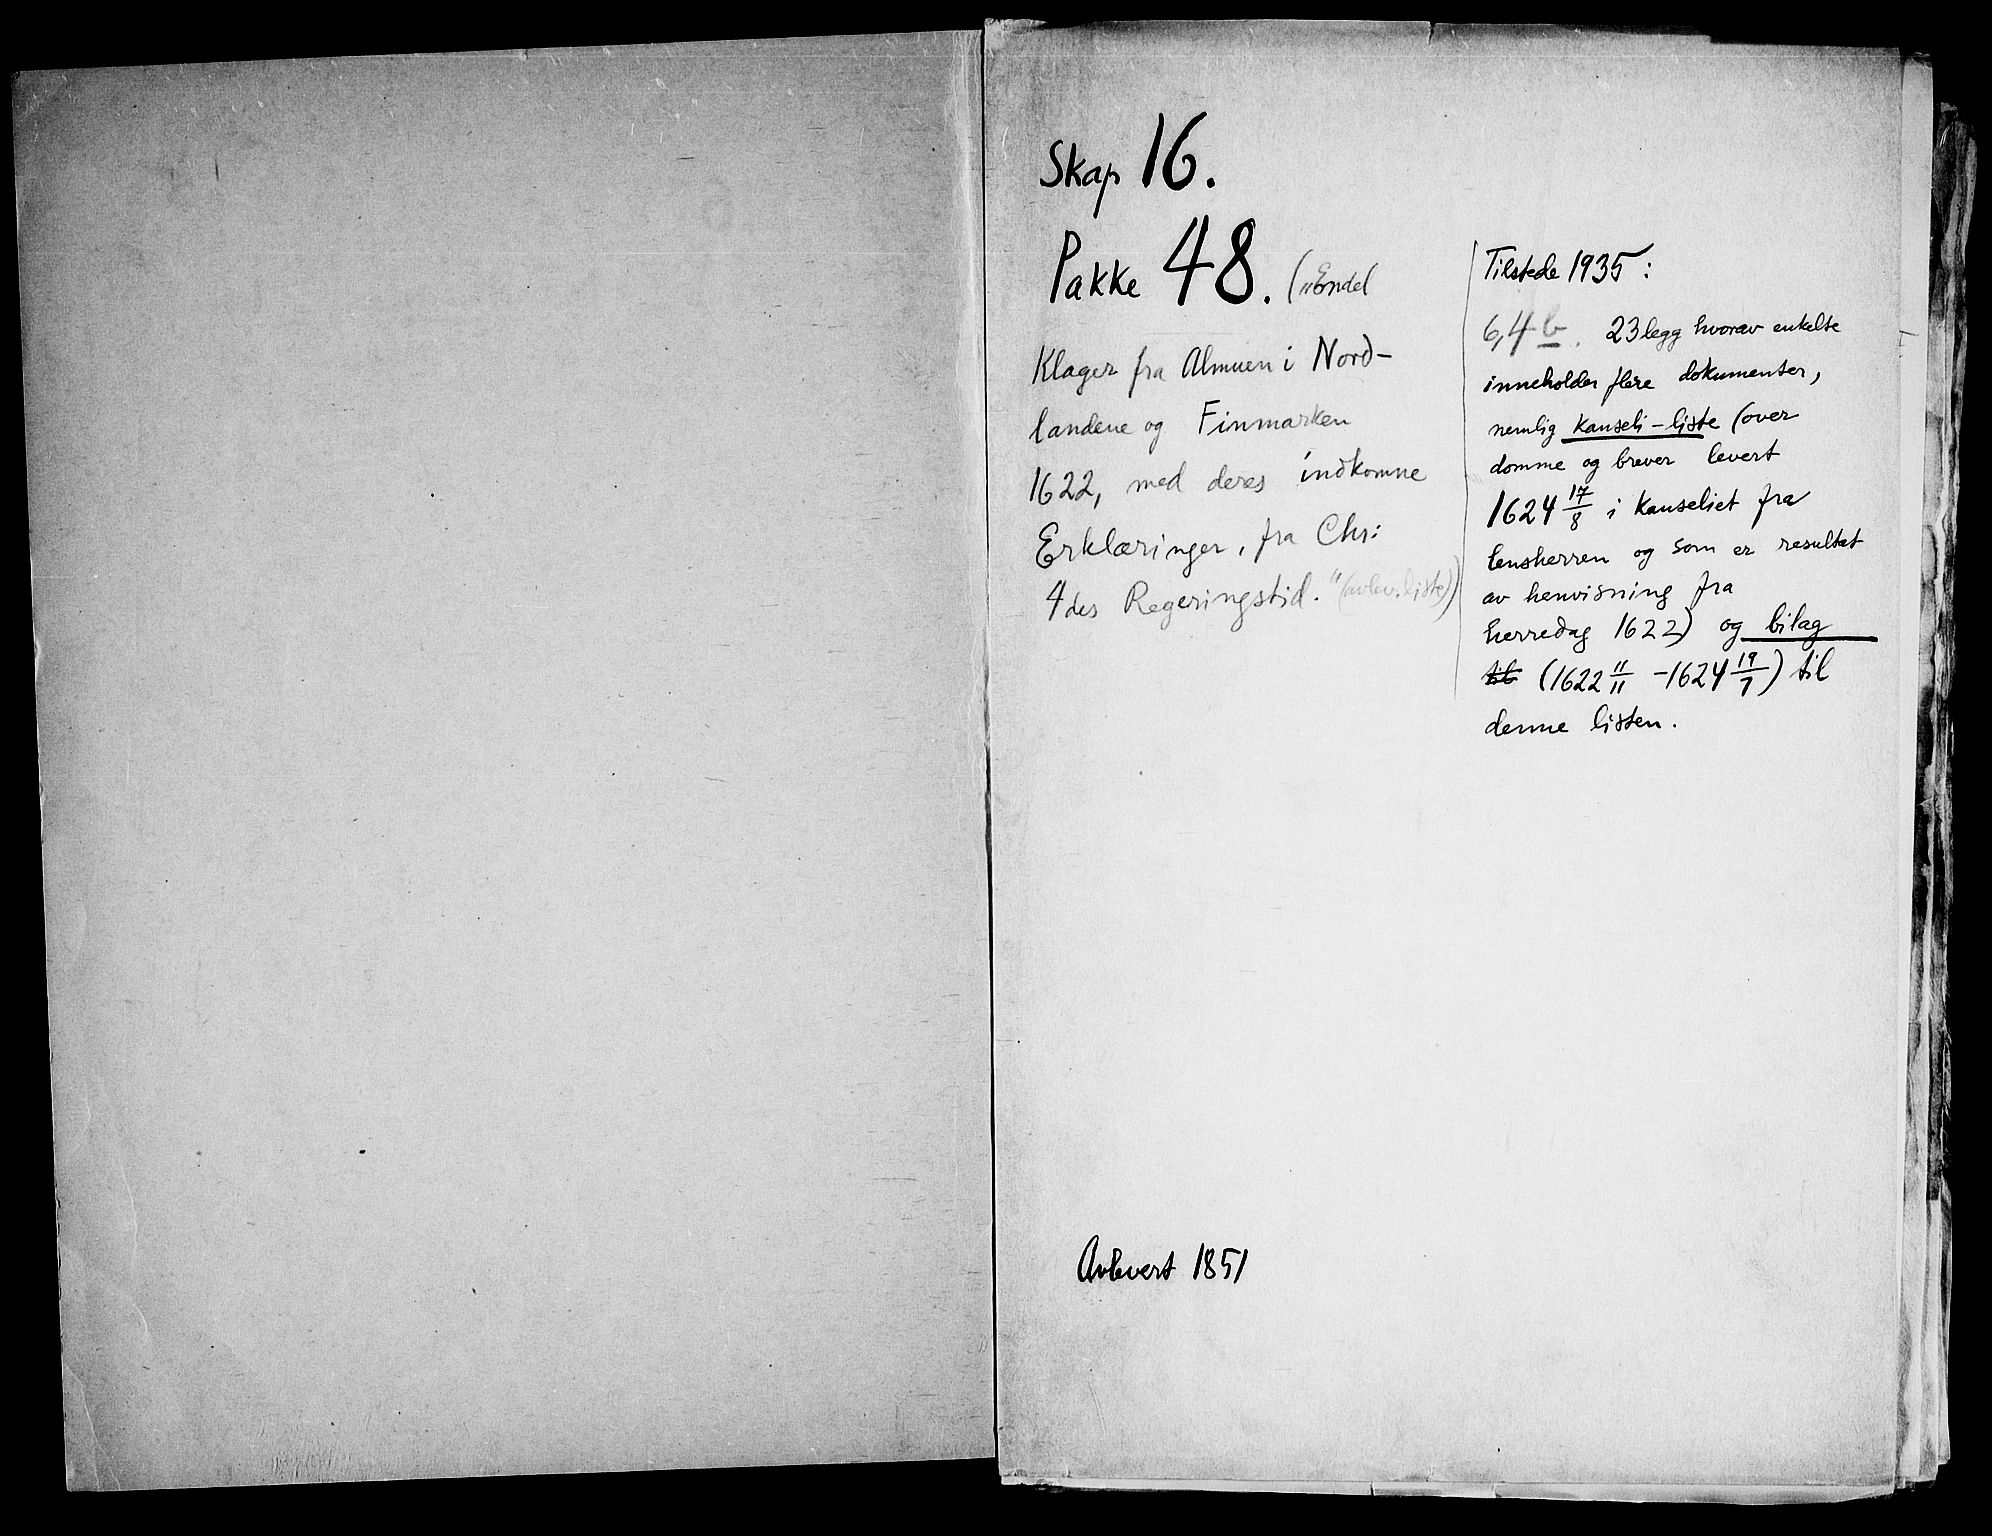 Skap 16.
Pakke 48. („Endel
Klager fra Almuen i Nord-
landene og Finmarken
1622, med deres indkomne
Erklæringer, fra Chr:
4des Regeringstid." (avlev.liste))
Tilstede 1935:
6,4 b. 23 legg hvorav enkelte
inneholder flere dokumenter,
nemlig kanseli-liste (over
domme og brever levert
1624 17/8 i kanseliet fra
lensherren og som er resultat
av henvisning fra
herredag 1622) og bilag
til (1622 11/11 - 1624 19/7) til
denne listen.
Avlevert 1851